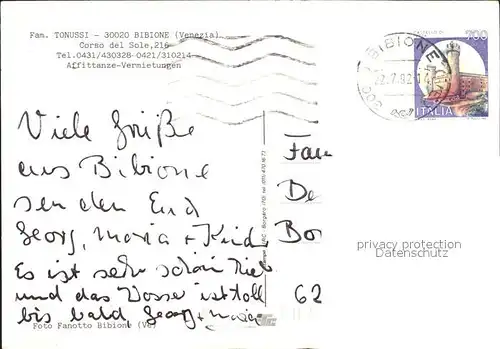 Fam. TONUSSI - 30020 BIBIONE (Venezia)
Corso del Sole,216
Tel.0431/430328-0421/310214
Affittanze-Vermietungen
700
BIBIONE
22.7.92
ITALIA
Viele Grüße
aus Bibione
senden Euch
Georg, Maria + Kinder
Es ist sehr schön hier
und das Wasser ist toll
bis bald, Georg + Maria
Fam
De
Bor
62
privacy protection
Datenschutz
Foto Fanotto Bibione (Ve)